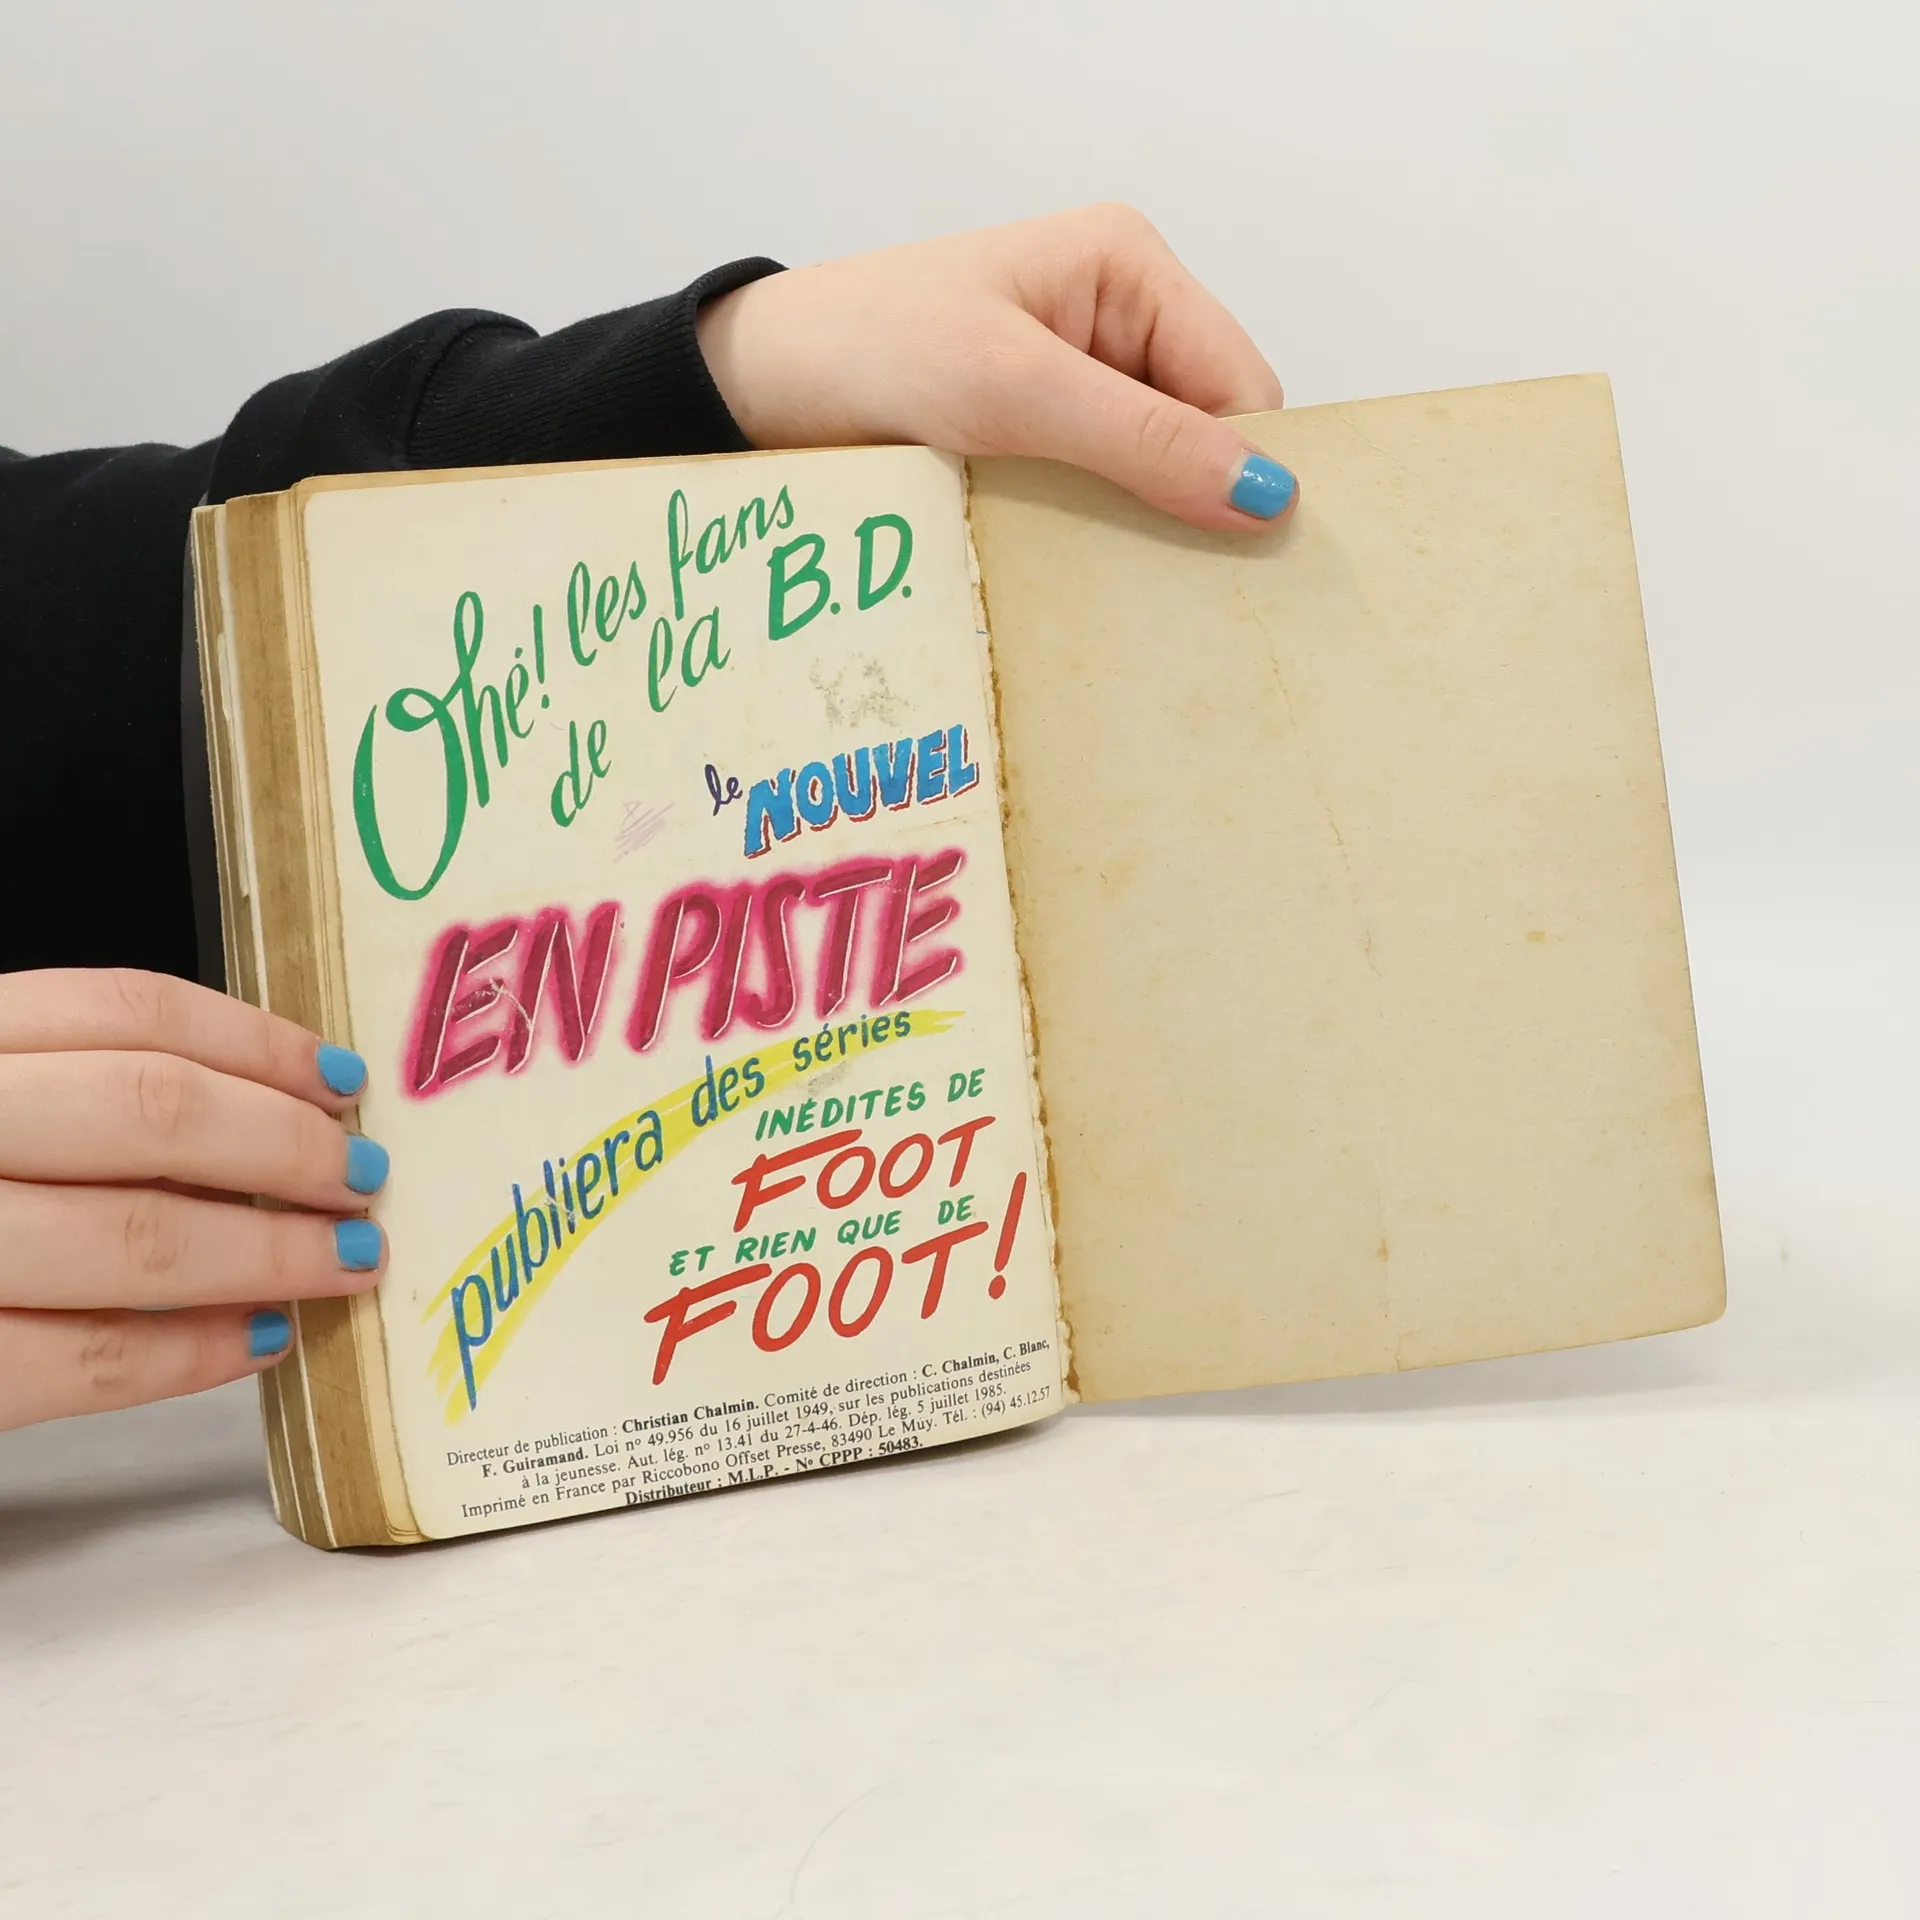 Ohé! les fans
de la B.D.
le NOUVEL
EN PISTE
publiera des séries
INÉDITES DE
FOOT
ET RIEN QUE DE
FOOT!
Directeur de publication : Christian Chalmin. Comité de direction : C. Chalmin, C. Blanc,
F. Guiramand. Loi nº 49.956 du 16 juillet 1949, sur les publications destinées
à la jeunesse. Aut. lég. nº 13.41 du 27-4-46. Dép. lég. 5 juillet 1985.
Imprimé en France par Riccobono Offset Presse, 83490 Le Muy. Tél. : (94) 45.12.57
Distributeur : M.L.P. - Nº CPPP : 50483.